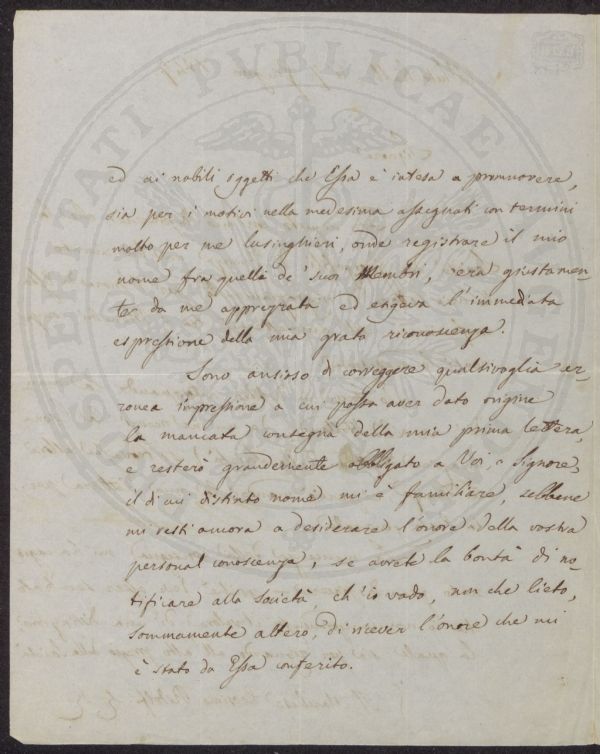 ed ai nobili oggetti che Essa è intesa a promuovere,
sia per i motivi nella medesima assegnati con termini
molto per me lusinghieri, onde registrare il mio
nome fra quelli de' suoi Membri, era giustamen-
te da me apprezzata ed esigeva l'immediata
espressione della mia grata riconoscenza.
Sono ansioso di correggere qualsivoglia er-
ronea impressione a cui possa aver dato origine
la mancata consegna della mia prima lettera,
e resterò grandemente obbligato a Voi, o Signore,
il di cui distinto nome mi è familiare, sebbene
mi resti ancora a desiderare l'onore della vostra
personal conoscenza, se avrete la bontà di no-
tificare alla Società, ch'io vado, non che lieto,
sommamente altero, di ricever l'onore che mi
è stato da Essa conferito.
PROSPERITATI PUBLICAE